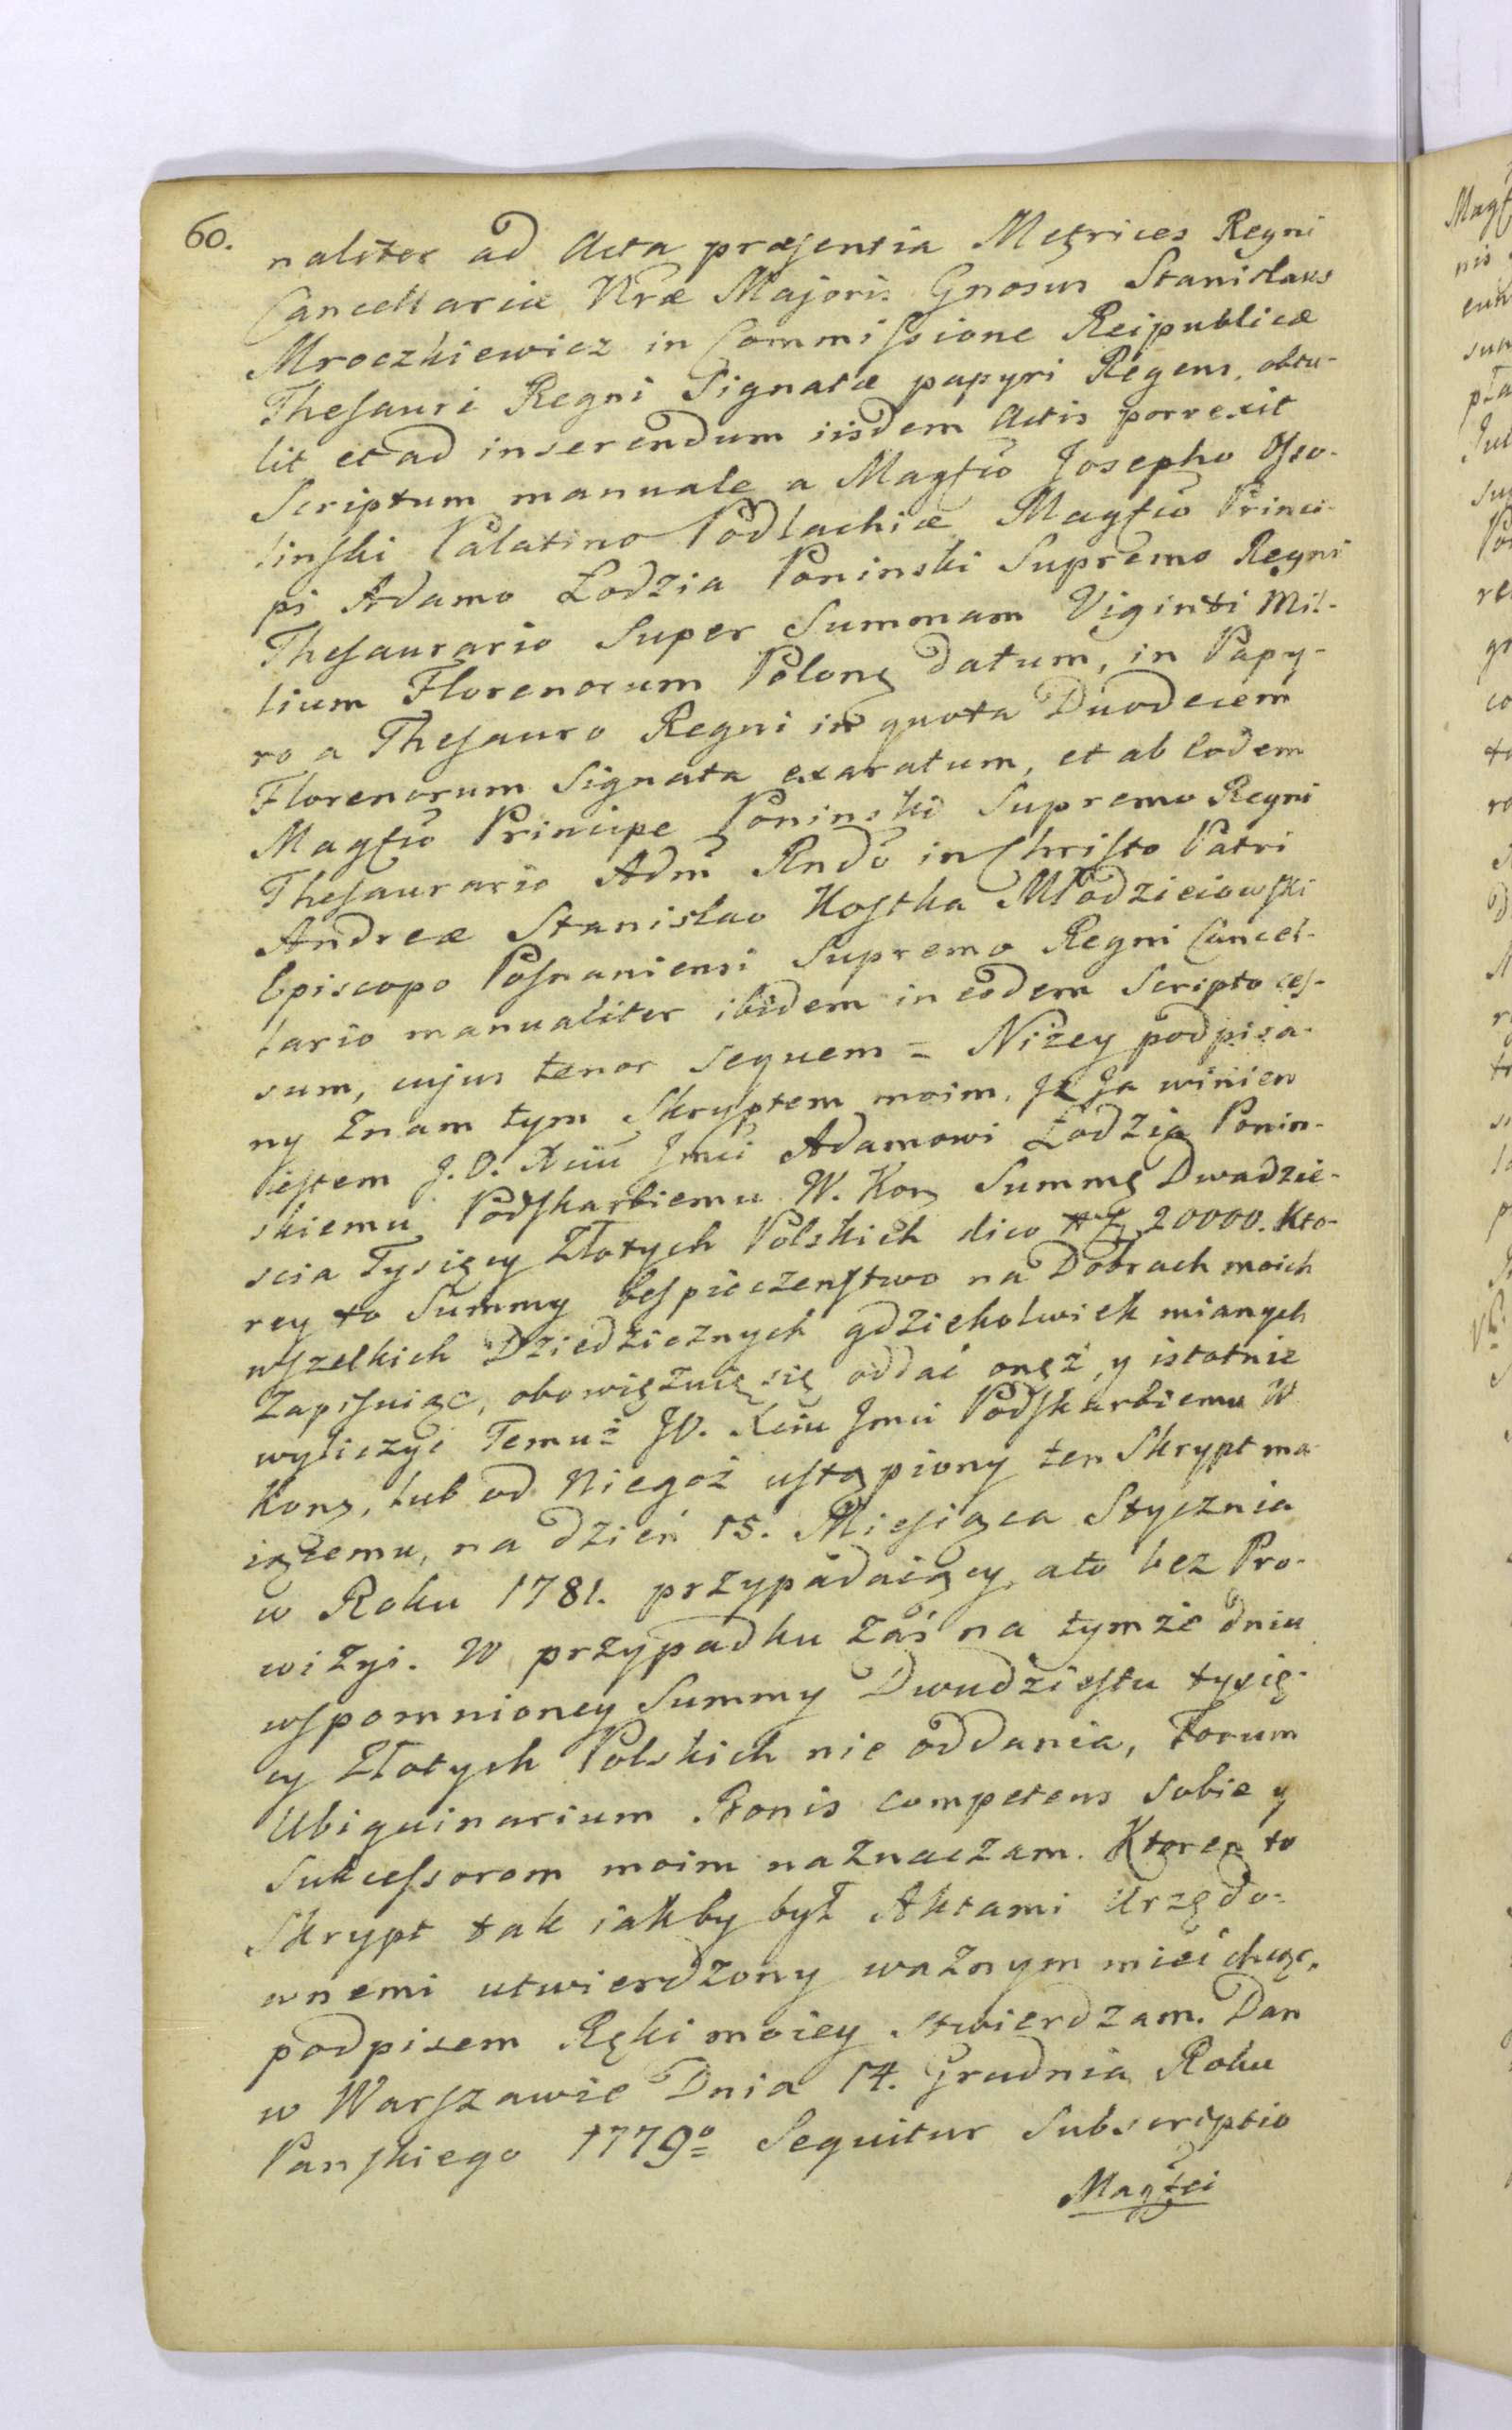 60.
naliter ad Acta præsentia Metrices Regni
Cancellariæ Nræ Majoris Gnosus Stanislaus
Mroczkiewicz in Commissione Reipublicæ
Thesauri Regni Signatæ papyri Regens, obtu-
lit et ad inserendum iisdem Actis porrexit
Scriptum manuale a Magfco Josepho Osso-
linski Palatino Podlachiæ Magfco Princi-
pi Adamo Łodzia Poninski Supremo Regni
Thesaurario Super Summam Viginti Mil-
lium Florenorum Polong datum, in Papy-
ro a Thesauro Regni in quota Duodecem
Florenorum Signata exaratum, et ab Eodem
Magfco Principe Poninski Supremo Regni
Thesaurario Adm Rndo in Christo Patri
Andreæ Stanislao Kostka Młodzieiowski
Episcopo Posnaniensi Supremo Regni Cancel-
lario manualiter ibidem in eodem Scripto ces-
sum, cujus tenor sequem = Niżey podpisa-
ny Znam tym Skryptem moim, Jż Ja winien
iestem J.O. Xciu Jmci Adamowi Łodzia Ponin-
skiemu Podskarbiemu W. Kor Summę Dwadzie-
scia Tysięcy Złotych Polskich dico 20000. Kto-
rey to Summy bespieczenstwo na Dobrach moich
wszelkich Dziedzicznych gdziekolwiek mianych
Zapisuiąc, obowięzuię się oddać onęż, y istotnie
wyliczyć Temuż JO. Xciu Jmci Podskarbiemu W
Korę, lub od Niegoż ustąpiony ten Skrypt ma-
iącemu, na dzień 15. Miesiąca Stycznia
w Roku 1781. przypadaiący, a to bez Pro-
wizyi. W przypadku zaś na tymże dniu
wspomnioney Summy Dwudziestu tysię-
cy Złotych Polskich nie oddania, Forum
Ubiquinarium Bonis competens Sobie y
Sukcessorom moim naznaczam. Ktoren to
Skrypt tak iakby był Aktami Urzędo-
wnemi utwierdzony ważnym mieć chcąc,
podpisem Ręki moiey stwierdzam. Dan
w Warszawie Dnia 14. Grudnia Roku
Panskiego 1779o= Sequitur Subscriptio
Magfci